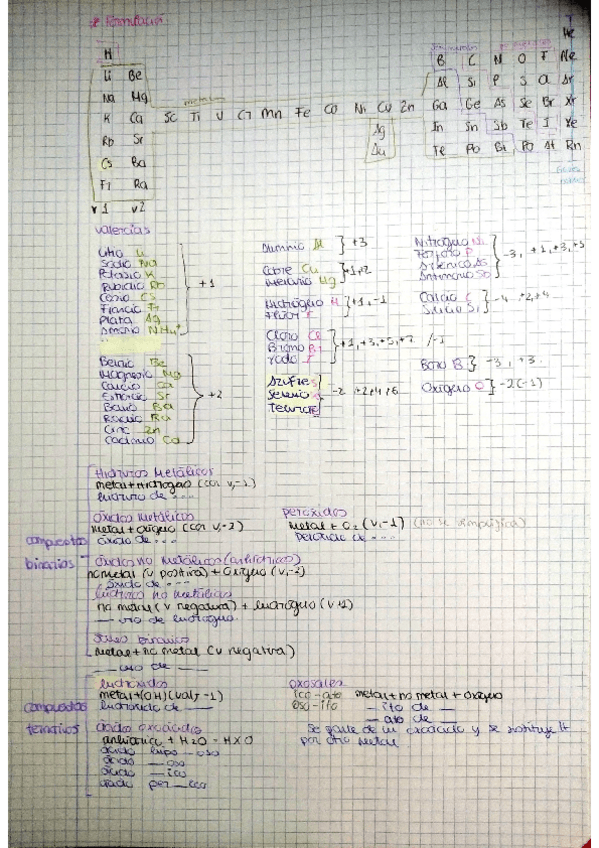 * Formulación
He
H
B C N O F Ne
Li Be
Al Si P S Cl Ar
Na Mg
metales
K Ca Sc Ti V Cr Mn Fe Co Ni Cu Zn Ga Ge As Se Br Kr
Rb Sr Ag In Sn Sb Te I Xe
Cs Ba Au Te Pb Bi Po At Rn
Fr Ra
v1 v2
valencias
Litio Li
Sodio Na
Potasio K
Rubidio Rb
Cesio Cs
Francio Fr
Plata Ag
Amonio NH4+
+1
Berilio Be
Magnesio Mg
Calcio Ca
Estroncio Sr
Bario Ba
Radio Ra
Cinc Zn
Cadmio Cd
+2
Aluminio Al } +3
Cobre Cu
Mercurio Hg
} +1,+2
Hidrógeno H
Flúor F
} +1, -1
Cloro Cl
Bromo Br
Yodo I
} +1, +3, +5, +7 /-1
Azufre S
Selenio
Telurio
-2 +2+4+6
Nitrógeno Ni
Fósforo P
Arsénico As
Antimonio Sb
} -3, +1, +3, +5
Calcio C
Silicio Si
} -4 +2,+4
Boro B } -3, +3
Oxígeno O } -2(-1)
compuestos binarios
Hidruros Metálicos
metal + Hidrógeno (con v,-1)
hidruro de ----
óxidos metálicos
metal + oxígeno (con v,-2)
óxido de ---
peróxidos
metal + O2 (v,-1) (no se simplifica)
peróxido de ---
óxidos no metálicos (anhídridos)
no metal (v positiva) + oxígeno (v,-2)
óxido de ---
hidruros no metálicos
no metal (v negativa) + hidrógeno (v+1)
__ uro de hidrógeno.
Sales binarias
metal + no metal (v negativa)
__ uro de __
compuestos ternarios
hidróxidos
metal + (OH) (val, -1)
hidróxido de __
oxosales
ico - ato metal + no metal + oxígeno
oso - ito __ ito de __
__ ato de __
Se parte de un oxoácido y se sustituye H
por otro metal
ácidos oxoácidos
anhídrido + H2O = HXO
ácido hipo __ oso
ácido __ oso
ácido __ ico
ácido per __ ico